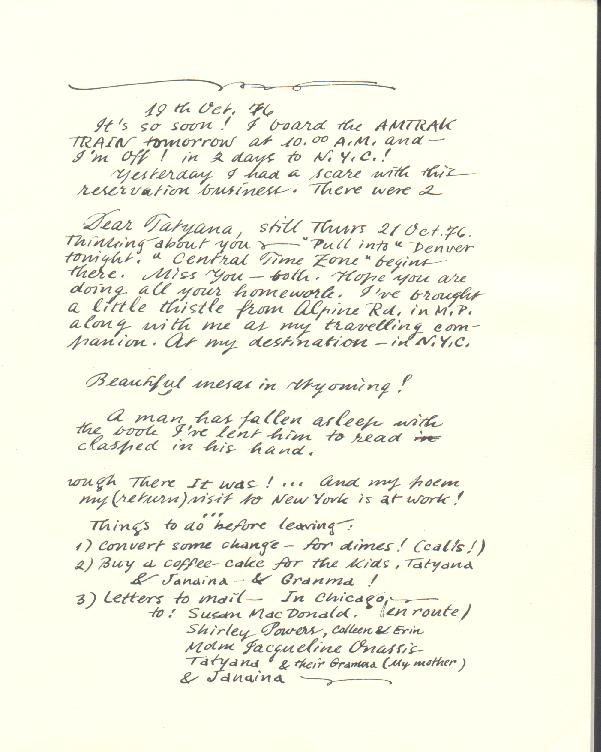 19th Oct. 76
It's so soon! I board the AMTRAK
TRAIN tomorrow at 10.00 A.M. and —
I'm off! in 2 days to N.Y.C.!
Yesterday I had a scare with this
reservation business. There were 2
Dear Tatyana, still Thurs 21 Oct. 76.
Thinking about you — "Pull into" Denver
tonight. "Central Time Zone" begins
there. Miss You — both. Hope you are
doing all your homework. I've brought
a little thistle from Alpine Rd. in M.P.
along with me as my travelling com-
panion. At my destination — in N.Y.C.
Beautiful mesas in Wyoming!
A man has fallen asleep with
the book I've lent him to read in
clasped in his hand.
rough There It was! ... And my poem
my (return) visit to New York is at work!
Things to do ... before leaving:
1) Convert some change — for dimes! (call's!)
2) Buy a coffee-cake for the kids. Tatyana
& Janaina & Granma!
3) Letters to mail — In Chicago,
to: Susan MacDonald. (en route)
Shirley Powers, Colleen & Erin
Mdm Jacqueline Onassis
Tatyana & their Granma (My mother)
& Janaina